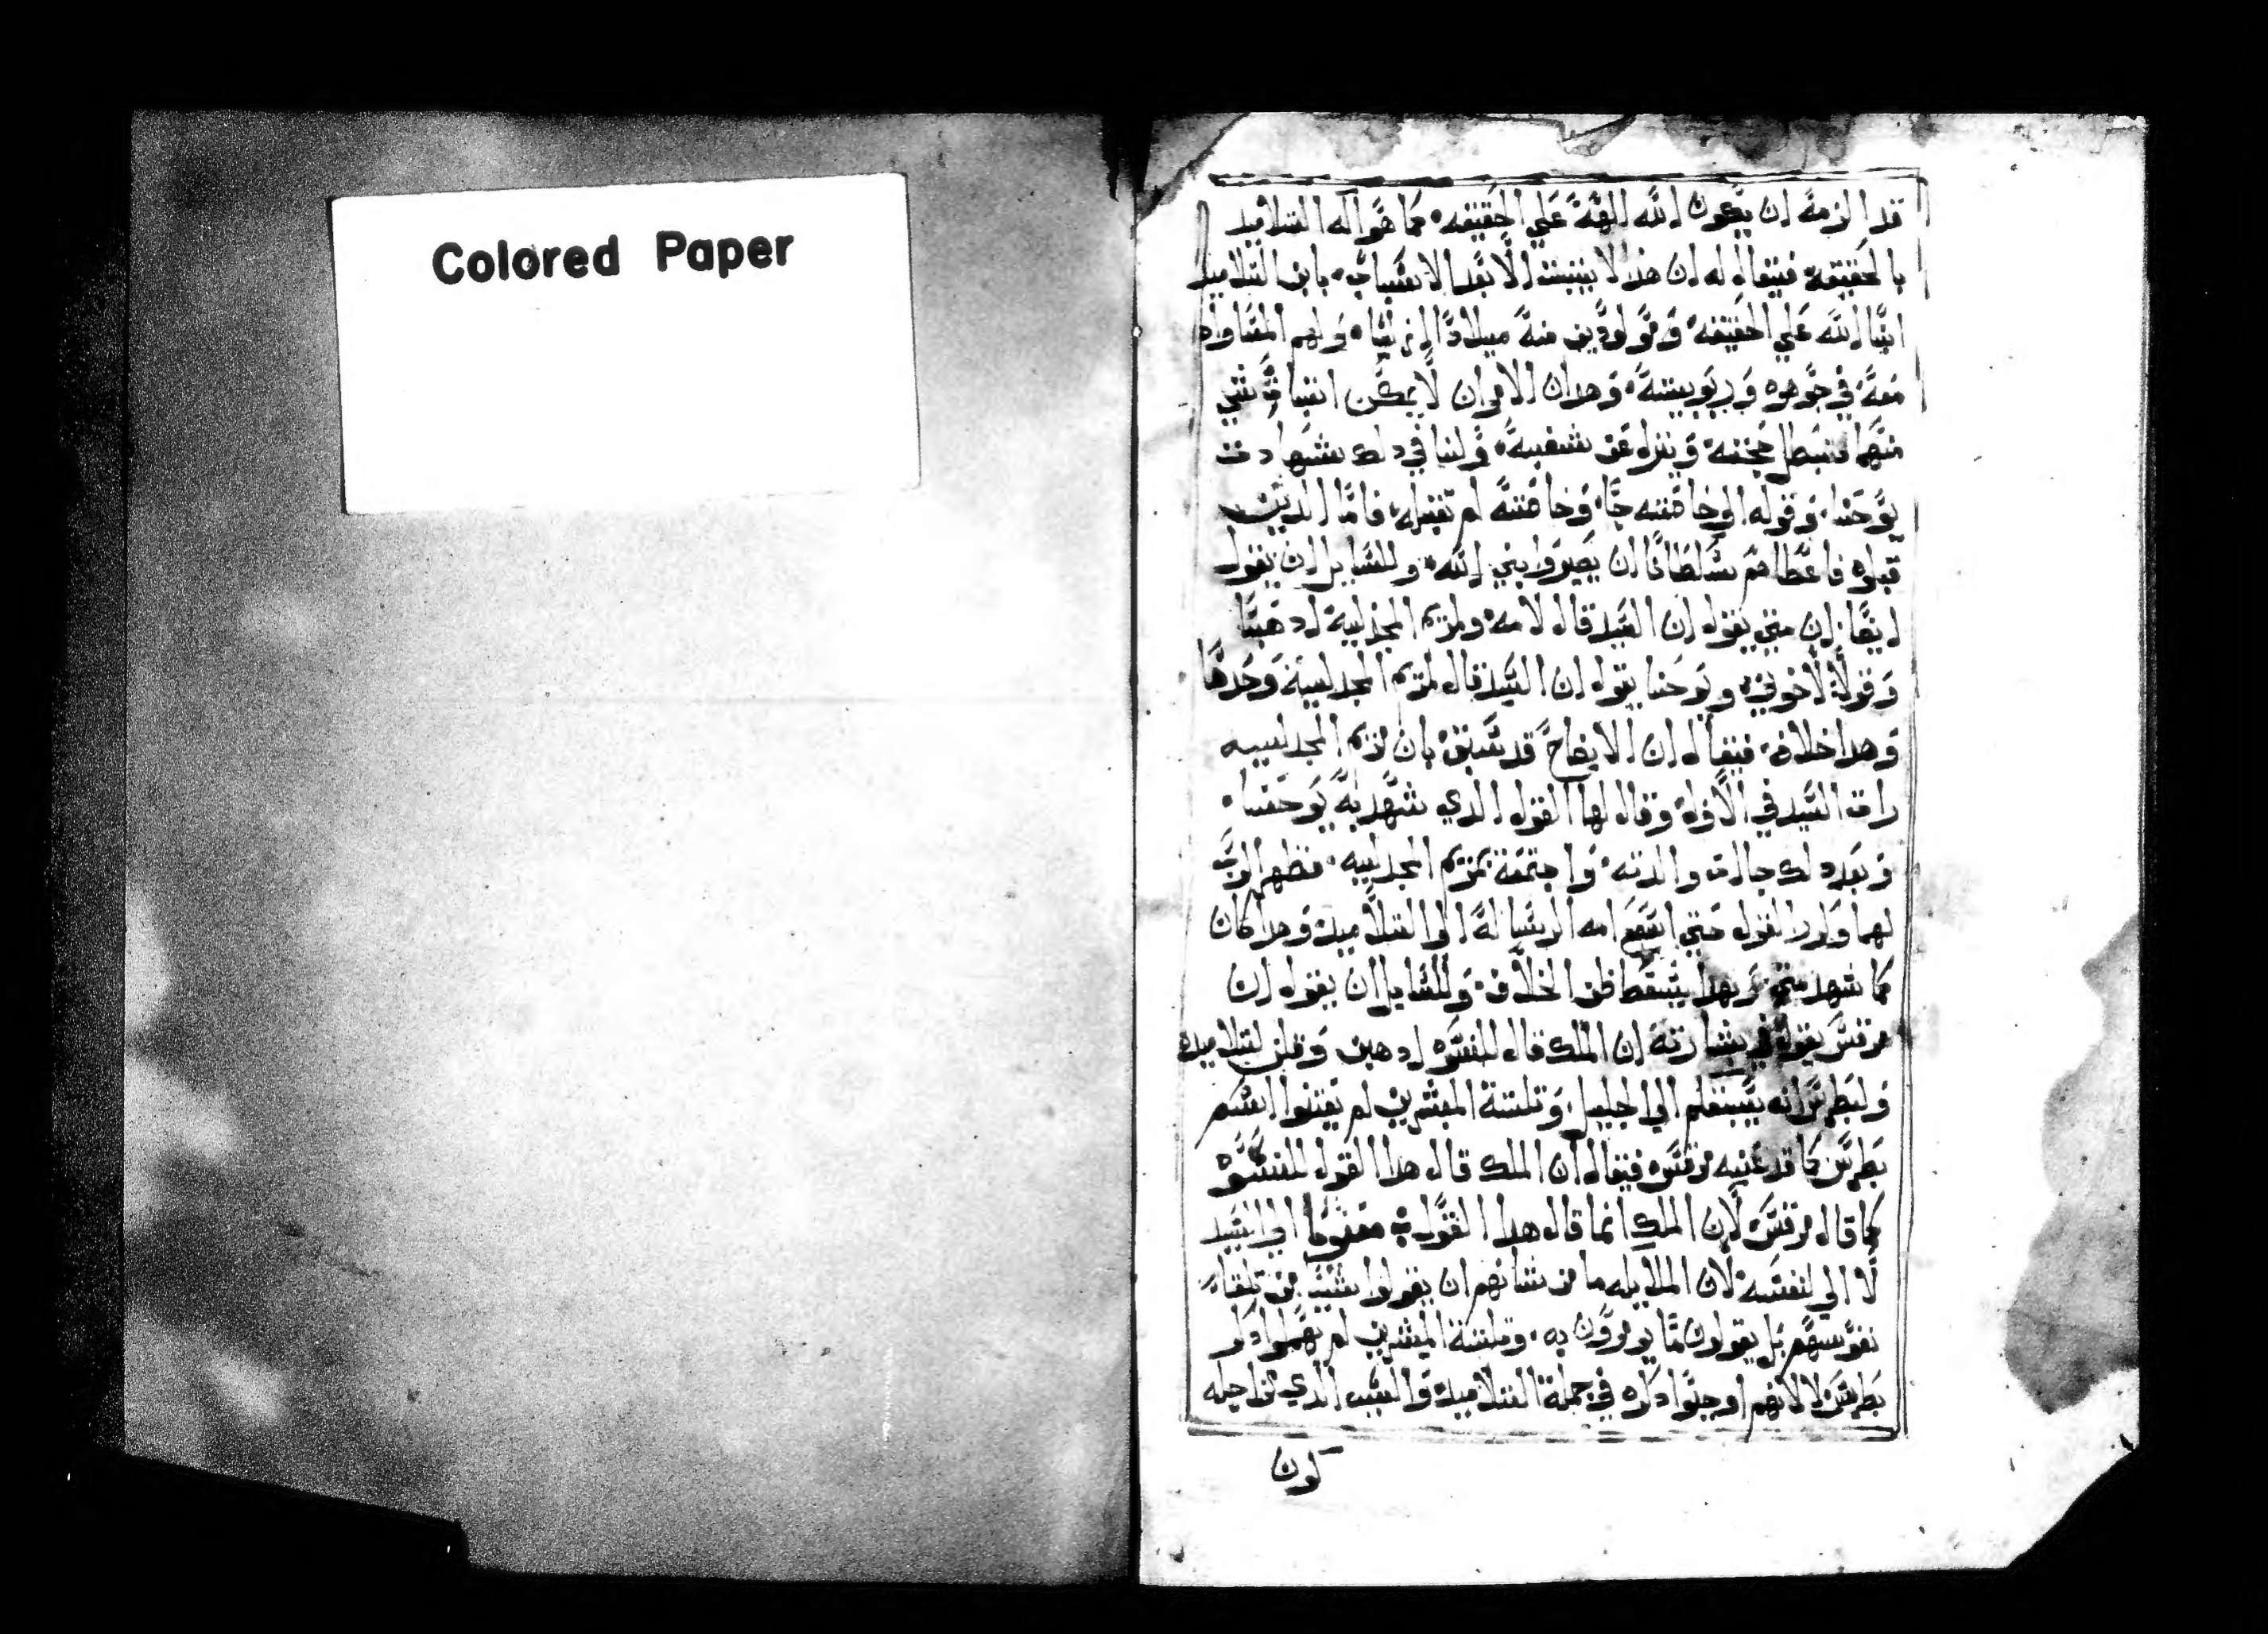 Colored Paper
قد الزمة ان يكون الله الهة علي الحقيقه كما هو اله التلاميد
بالحقيقه فيقال له ان هدا لا يتبت الا بعد الاتبات بان التلاميد
ابنا الله علي الحقيقه ومولودين منه ميلادا ازليا ولهم المساواه
معه في جوهره وربوبيته وهدان الامران لا يمكن اتبات شي
منهما فتبطل حجته ويزل عن شغبه ولنا في دلك شهادت
يوحنا وقوله الي خاصته جا وخاصته لم تقبله فاما الدين
قبلوه فاعطاهم سلطانا ان يصيروا بني الله وللسايل ان يقول
ايضا ان متي يقول ان السيد قال لامه ومريم المجدليه ادهبا
وقولا لاخوتي ويوحنا يقول ان السيد قال لمريم المجدليه وحدها
وهدا خلاف فيقال ان الايضاح قد سبق بان مريم المجدليه
رات السيد في الاول وقال لها القول الدي شهد به يوحنا
وبعد دلك جات والدته واجتمعة بمريم المجدليه فظهر الرب
لهما القول حتي امه الرساله الي التلاميد وهدا كان
كما شهد متي وبهدا يسقط ظن الخلاف وللسايل ان يقول ان
مرقس يقول في بشارته ان الملك قال للنسوه ادهبن وقلن لتلاميده
ولبطرس انه يسبقكم الي الجليل وتلتة المبشرين لم يقولوا اسم
بطرس كما قد عينه مرقس فيقال ان الملك قال هدا القول للنسوه
كما قال مرقس لان الملك انما قال هدا القول معزوما الي السيد
لا الي نفسه لان الملايكه ما من شانهم ان يقولوا شيا من تلقا
نفوسهم بل يقولون ما يومرون به وتلتة المبشرين لم يهملوا دكر
بطرس الا لانهم اوجلوا دكره في جملة التلاميد والسبب الدي من اجله
كون